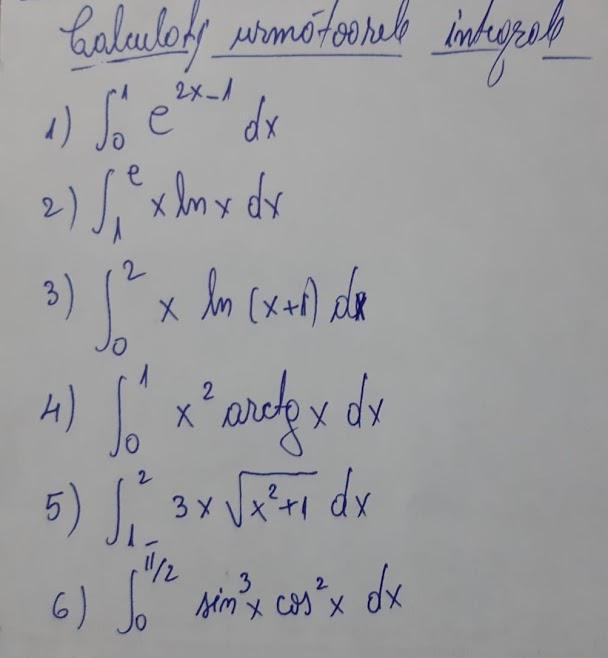 Calculați următoarele integrale
1) ∫₀¹ e^(2x-1) dx
2) ∫₁ᵉ x ln x dx
3) ∫₀² x ln (x+1) dx
4) ∫₀¹ x² arctg x dx
5) ∫₁² 3x √(x²+1) dx
6) ∫₀^(π/2) sin³x cos²x dx